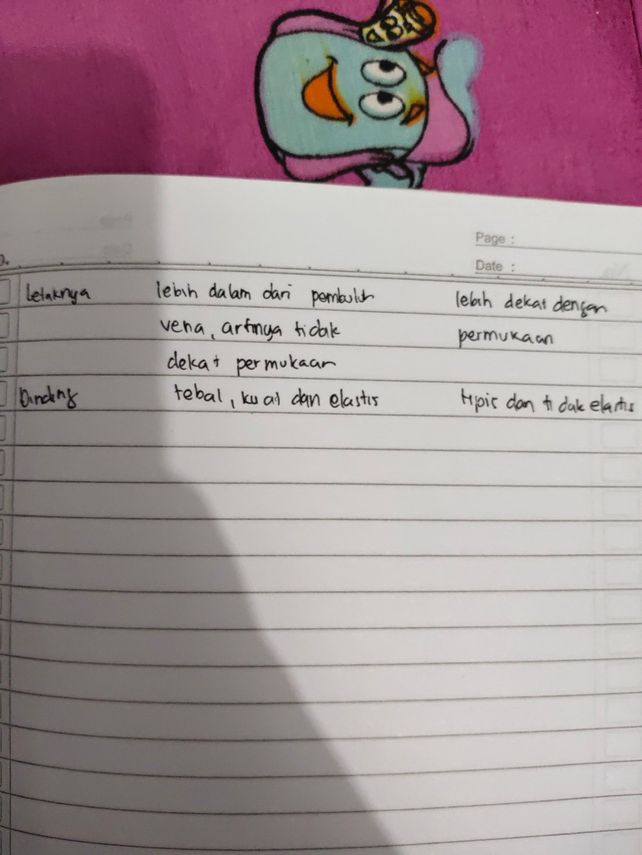 ABC
Page :
Date :
Letaknya lebih dalam dari pembuluh lebih dekat dengan
vena, artinya tidak permukaan
dekat permukaan
Dinding tebal, kuat dan elastis tipis dan tidak elastis